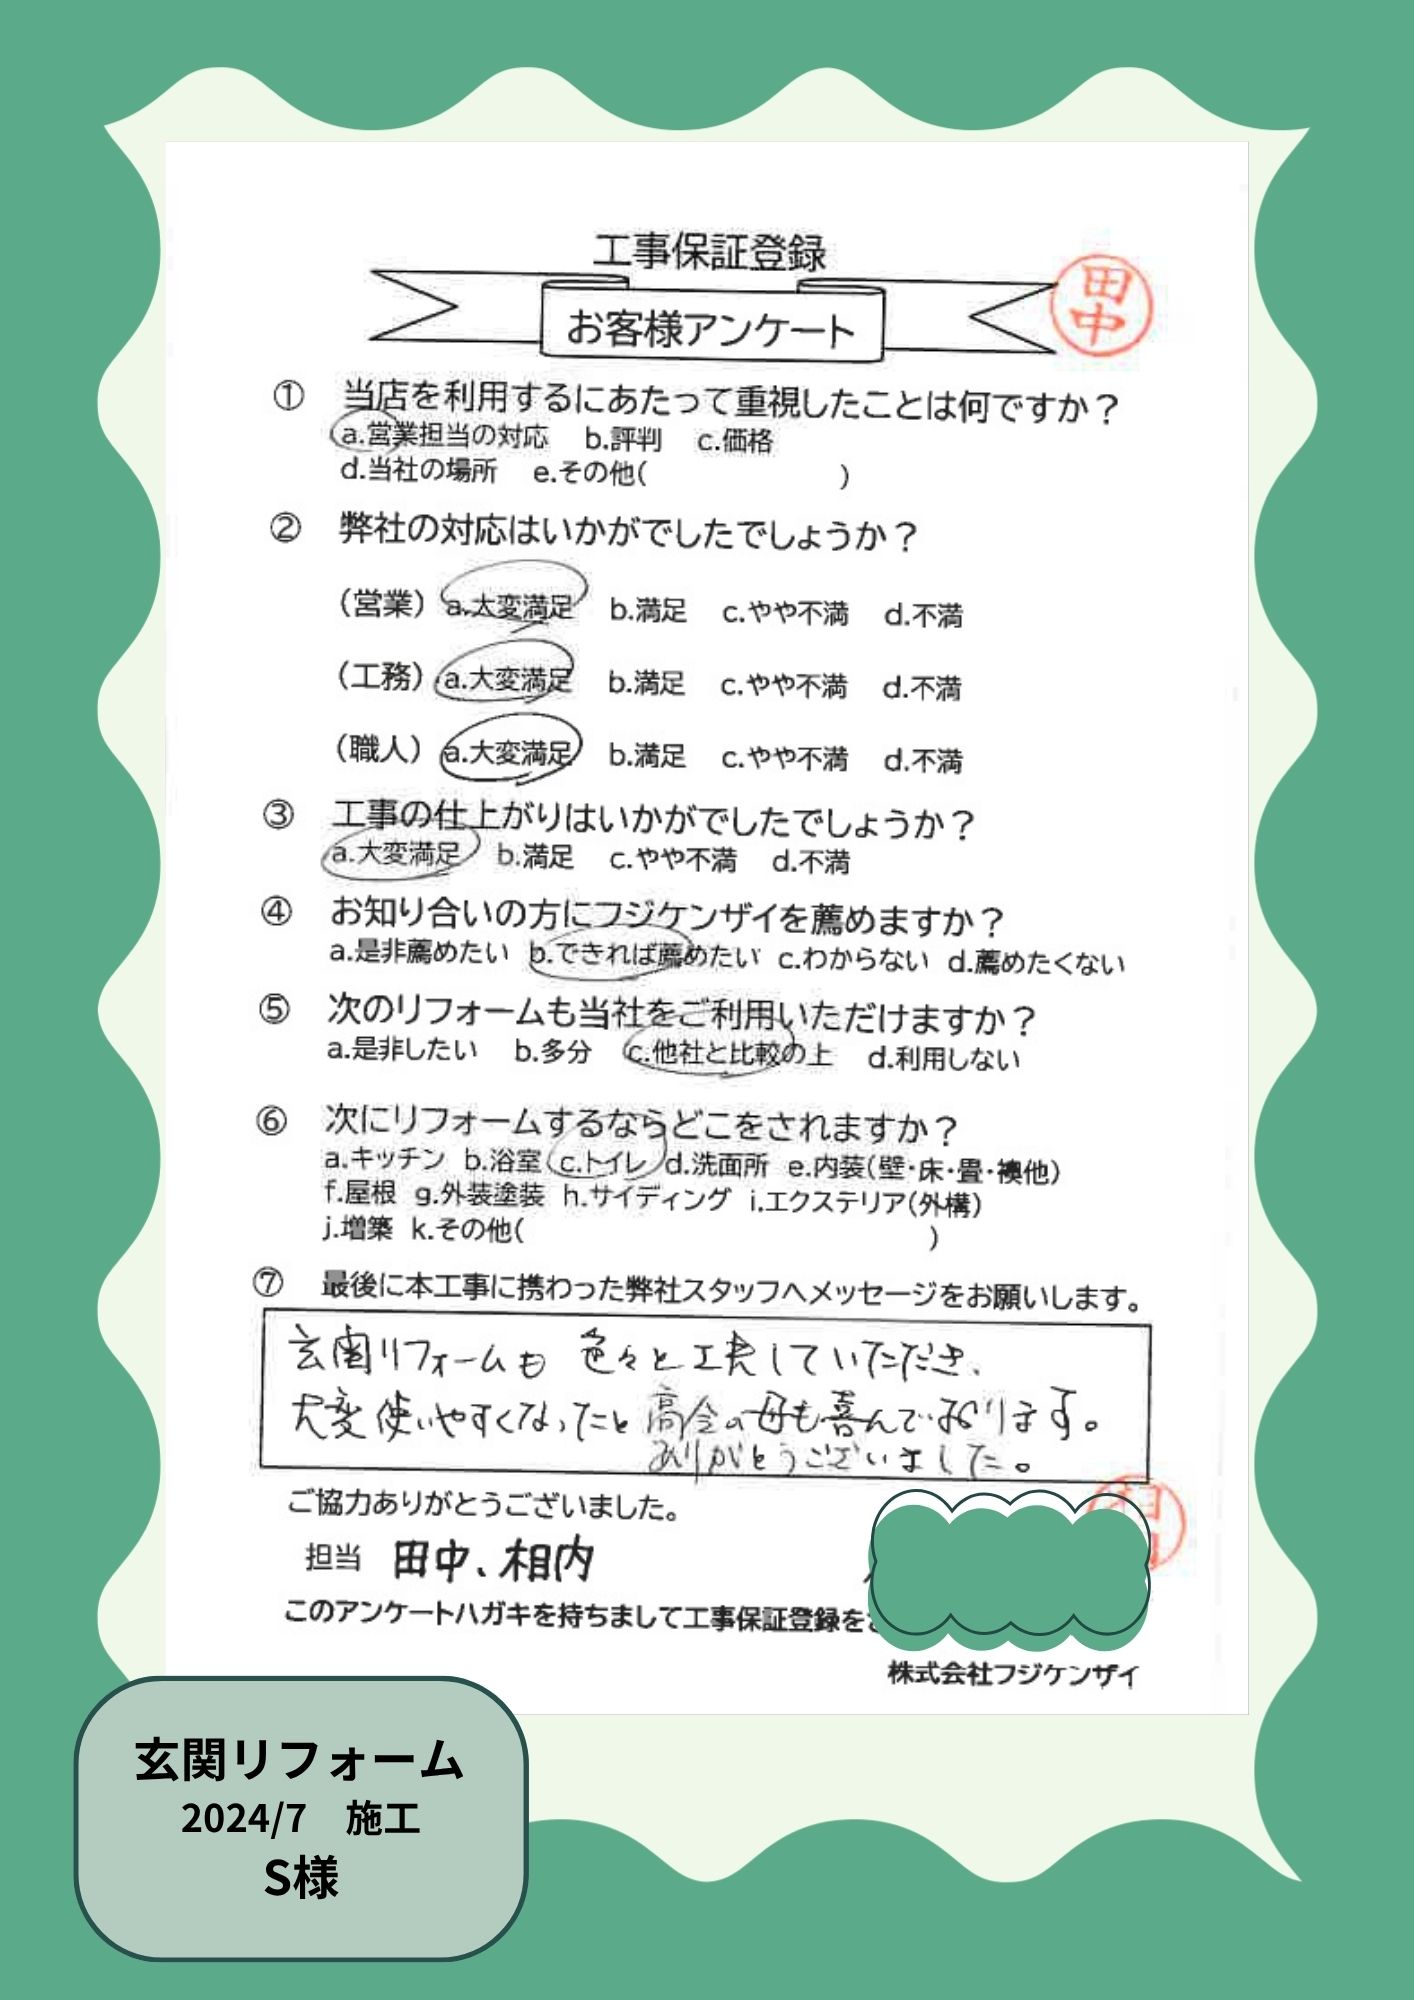 工事保証登録
お客様アンケート
田中
① 当店を利用するにあたって重視したことは何ですか？
a.営業担当の対応 b.評判 c.価格
d.当社の場所 e.その他( )
② 弊社の対応はいかがでしたでしょうか？
（営業） a.大変満足 b.満足 c.やや不満 d.不満
（工務） a.大変満足 b.満足 c.やや不満 d.不満
（職人） a.大変満足 b.満足 c.やや不満 d.不満
③ 工事の仕上がりはいかがでしたでしょうか？
a.大変満足 b.満足 c.やや不満 d.不満
④ お知り合いの方にフジケンザイを薦めますか？
a.是非薦めたい b.できれば薦めたい c.わからない d.薦めたくない
⑤ 次のリフォームも当社をご利用いただけますか？
a.是非したい b.多分 c.他社と比較の上 d.利用しない
⑥ 次にリフォームするならどこをされますか？
a.キッチン b.浴室 c.トイレ d.洗面所 e.内装(壁・床・畳・襖他)
f.屋根 g.外装塗装 h.サイディング i.エクステリア(外構)
j.増築 k.その他( )
⑦ 最後に本工事に携わった弊社スタッフへメッセージをお願いします。
玄関リフォームも 色々と工夫していただき、
大変使いやすくなったと高令の母も喜んでおります。
ありがとうございました。
ご協力ありがとうございました。
担当 田中、相内
このアンケートハガキを持ちまして工事保証登録を
株式会社フジケンザイ
玄関リフォーム
2024/7 施工
S様